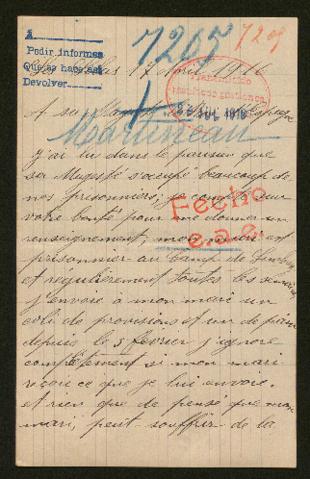 A
Pedir informes
Que se hace así
Devolver
7205
729
17 1916
Transmitido
JUL 1916
A sa
Martineau
j'ai lu dans le parisien que
sa Majesté s'occupe beaucoup de
nos prisonniers, je compte sur
votre bonté pour me donner un
renseignement, mon mari est
prisonnier au Camp de
et régulièrement toutes les
j'envoie à mon mari un
coli de provisions et un de pain
depuis le 5 février j'ignore
complètement si mon mari
reçoie ce que je lui envoie.
et rien que de pensé que mon
mari, peut souffrir de la
Fecho
e.a.e.